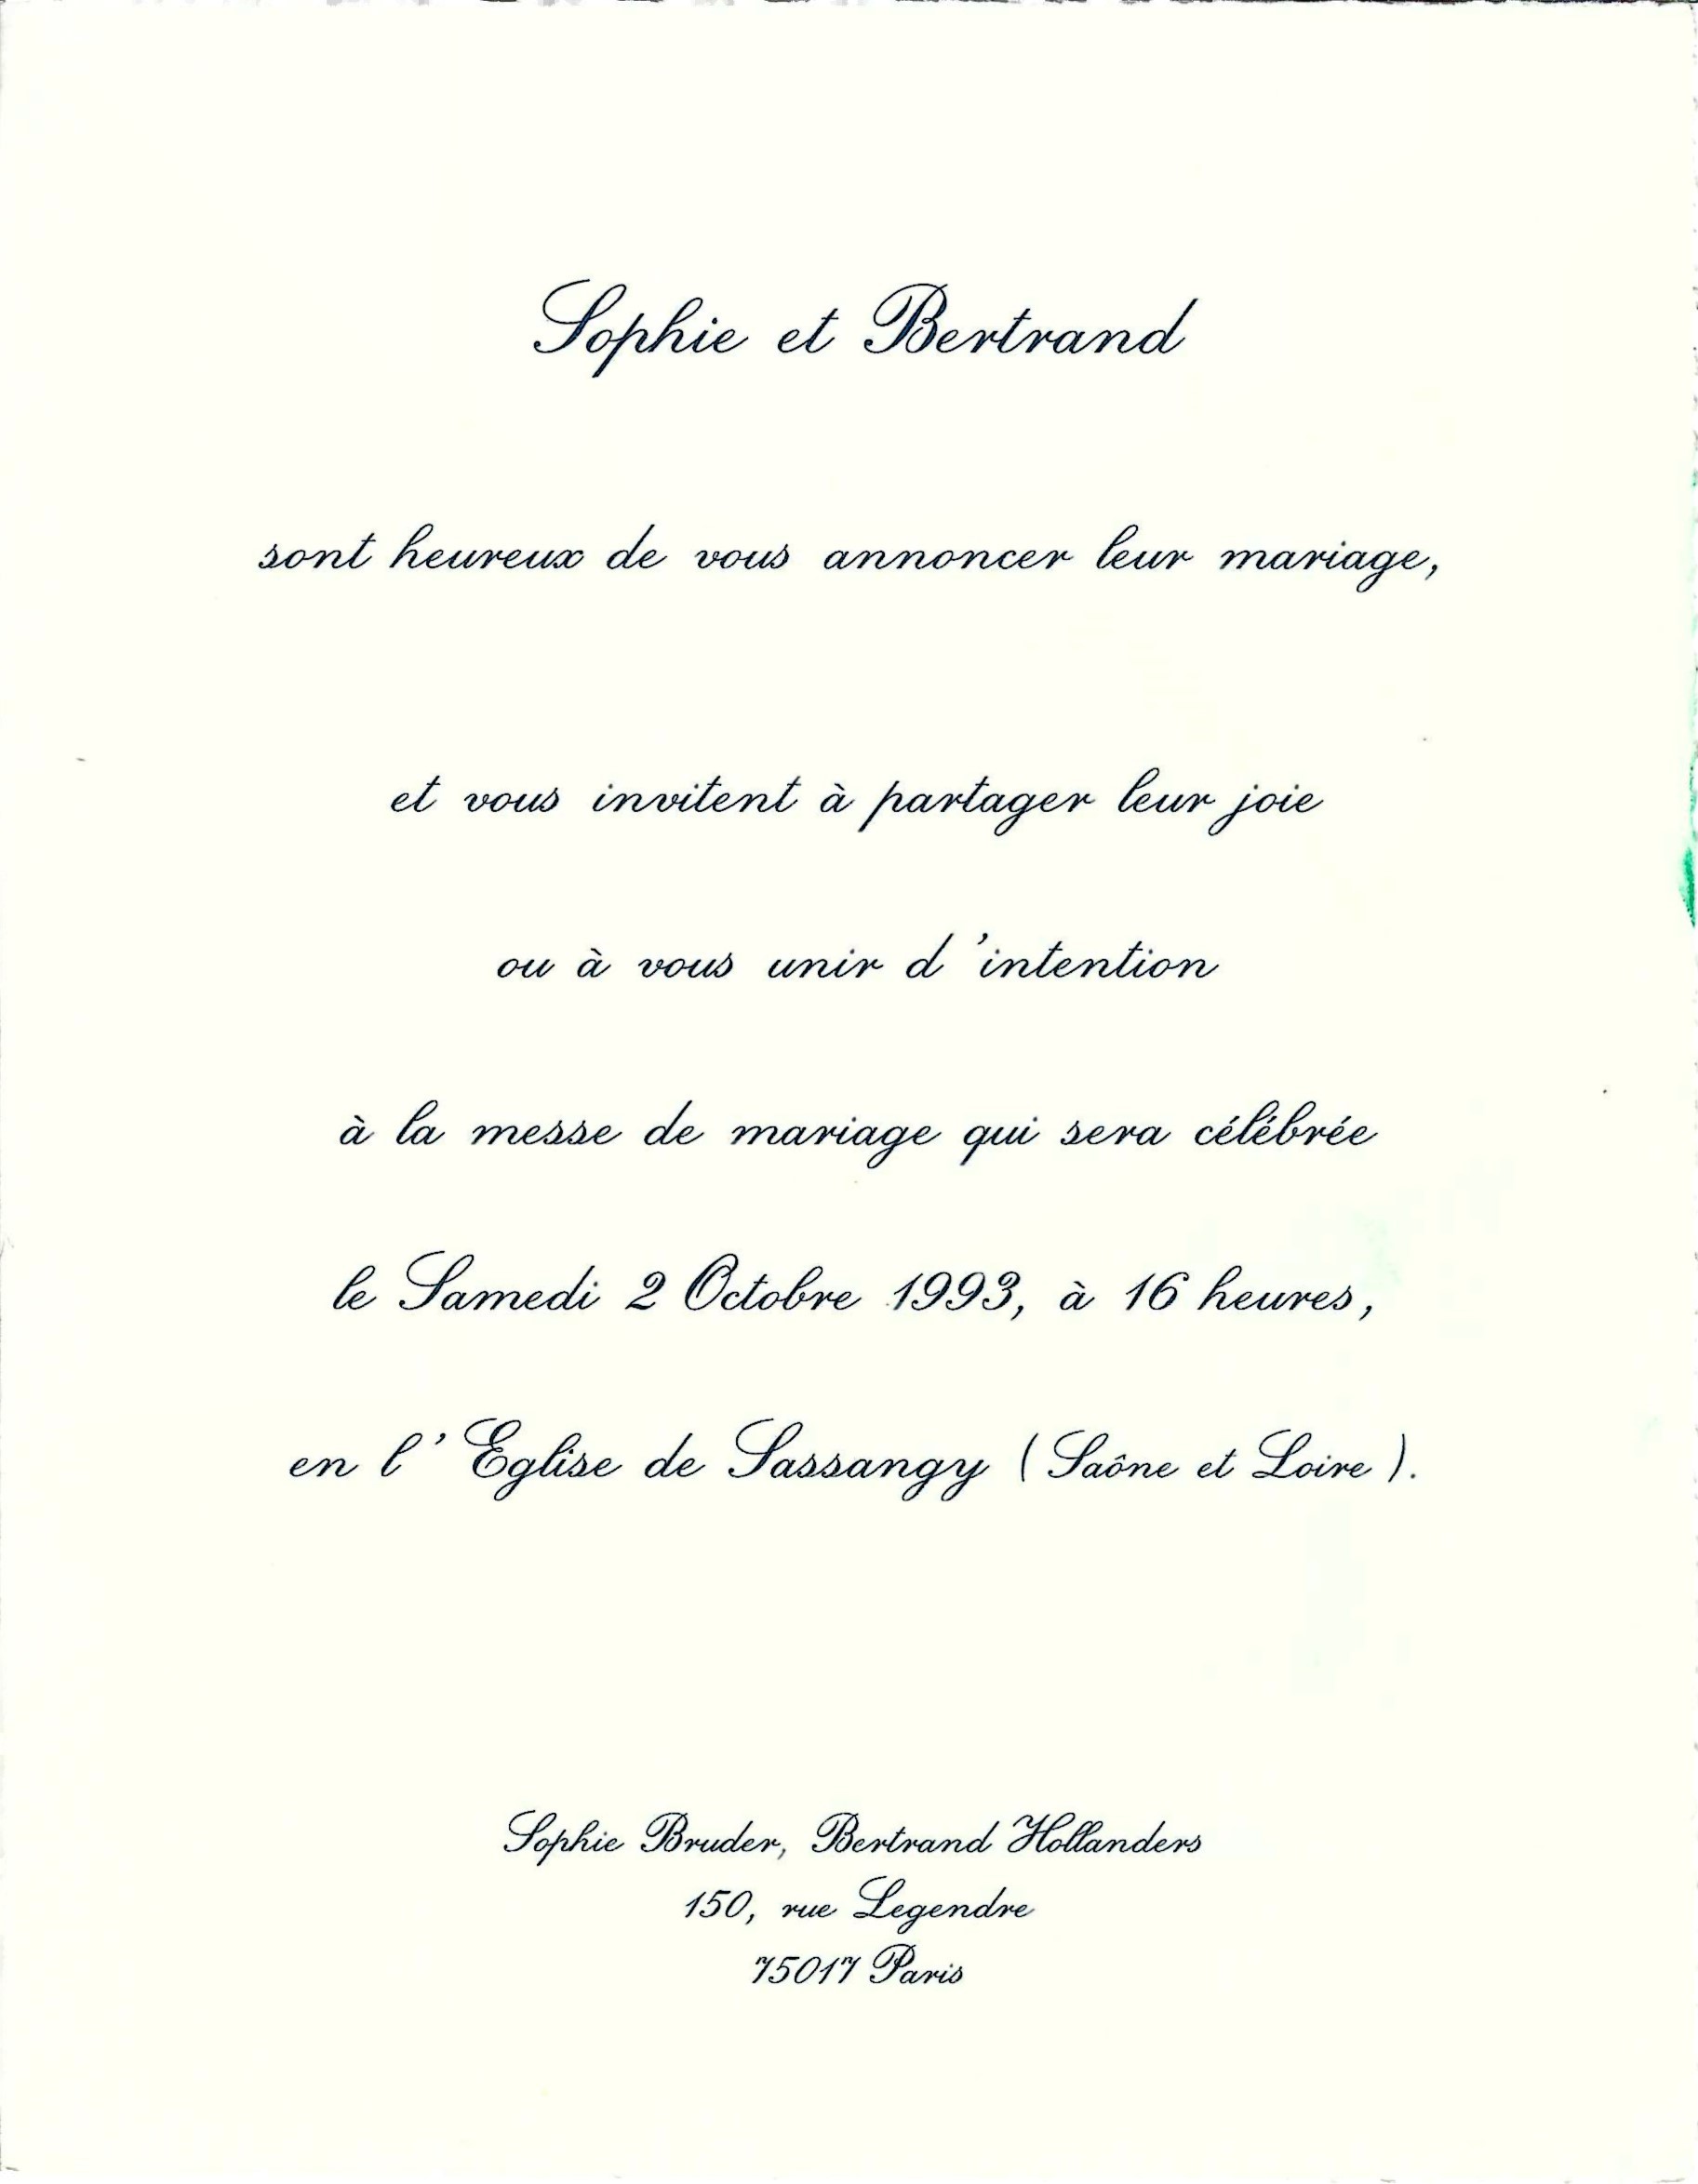 Sophie et Bertrand
sont heureux de vous annoncer leur mariage,
et vous invitent à partager leur joie
ou à vous unir d'intention
à la messe de mariage qui sera célébrée
le Samedi 2 Octobre 1993, à 16 heures,
en l'Eglise de Sassangy (Saône et Loire).
Sophie Bruder, Bertrand Hollanders
150, rue Legendre
75017 Paris